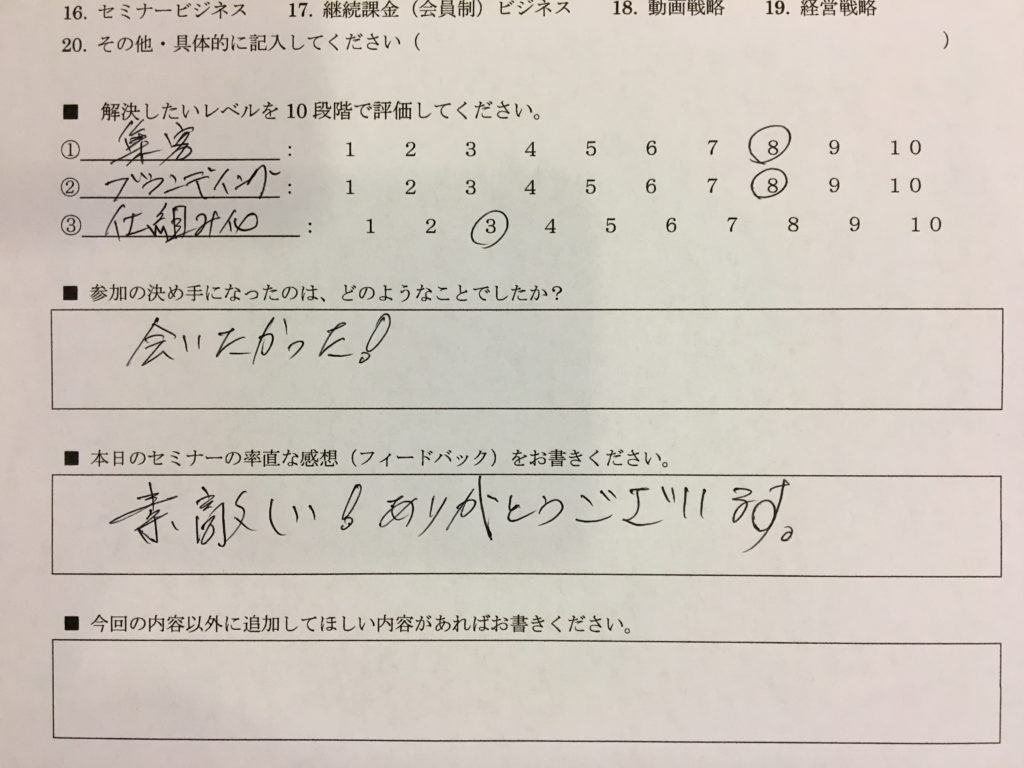 16. セミナービジネス 17. 継続課金（会員制）ビジネス 18. 動画戦略 19. 経営戦略
20. その他・具体的に記入してください（ ）
■ 解決したいレベルを10段階で評価してください。
① 集客 : 1 2 3 4 5 6 7 8 9 10
② ブランディング : 1 2 3 4 5 6 7 8 9 10
③ 仕組み化 : 1 2 3 4 5 6 7 8 9 10
■ 参加の決め手になったのは、どのようなことでしたか？
会いたかった！
■ 本日のセミナーの率直な感想（フィードバック）をお書きください。
素敵しい！ありがとうございます。
■ 今回の内容以外に追加してほしい内容があればお書きください。